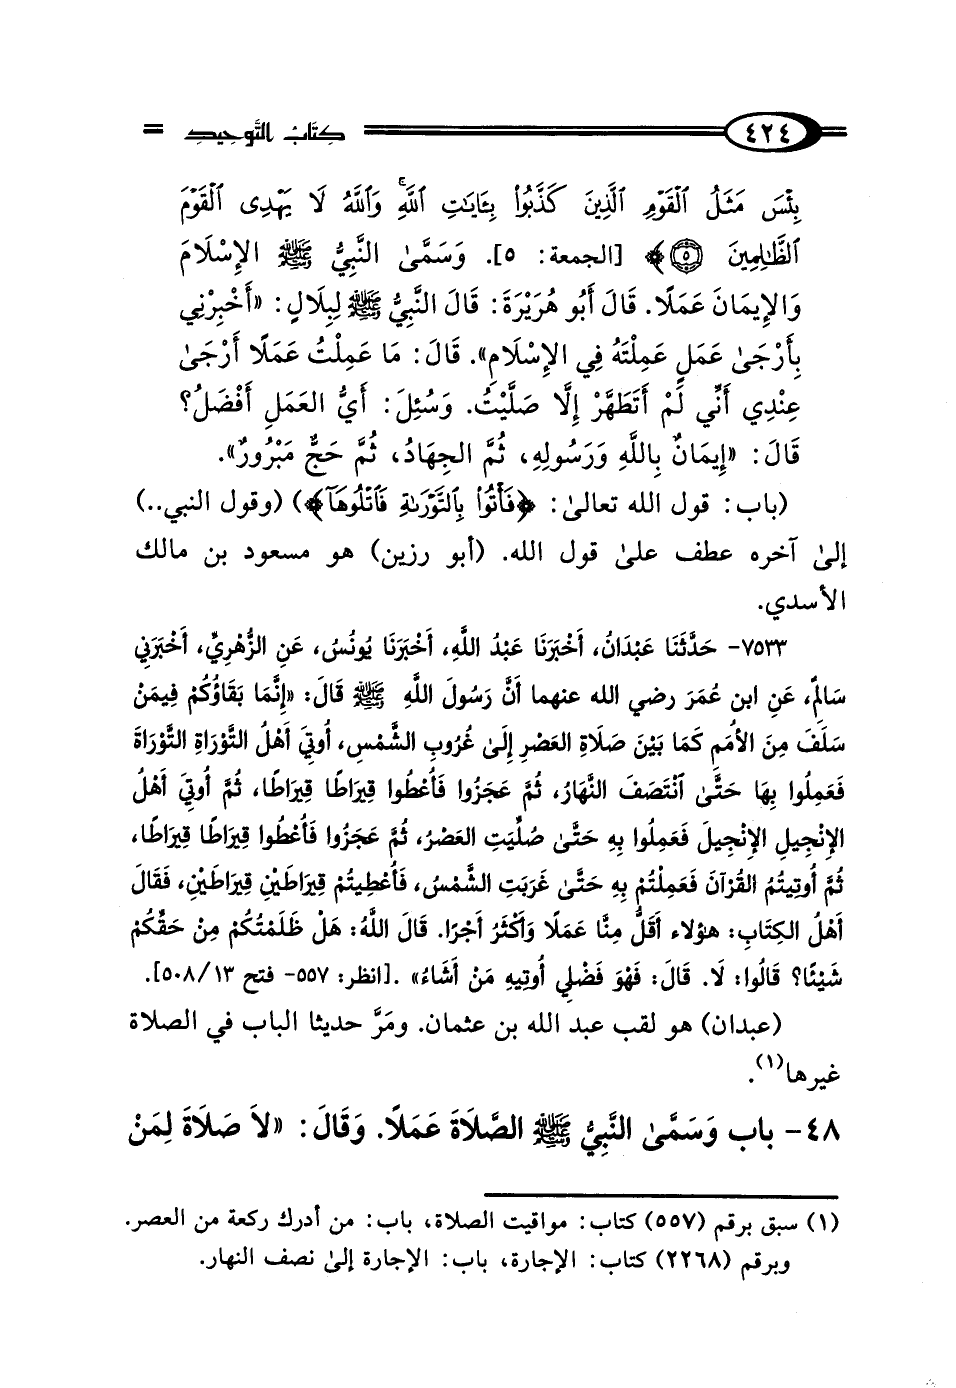 ٤٢٤ كتاب التوحيد
بِئْسَ مَثَلُ ٱلْقَوْمِ ٱلَّذِينَ كَذَّبُوا۟ بِـَٔايَـٰتِ ٱللَّهِ ۚ وَٱللَّهُ لَا يَهْدِى ٱلْقَوْمَ
ٱلظَّـٰلِمِينَ ٥﴾ [الجمعة: ٥]. وَسَمَّىٰ النَّبِيُّ ﷺ الإِسْلَامَ
وَالإِيمَانَ عَمَلًا. قَالَ أَبُو هُرَيْرَةَ: قَالَ النَّبِيُّ ﷺ لِبِلَالٍ: «أَخْبِرْنِي
بِأَرْجَىٰ عَمَلٍ عَمِلْتَهُ فِي الإِسْلَامِ». قَالَ: مَا عَمِلْتُ عَمَلًا أَرْجَىٰ
عِنْدِي أَنِّي لَمْ أَتَطَهَّرْ إِلَّا صَلَّيْتُ. وَسُئِلَ: أَيُّ العَمَلِ أَفْضَلُ؟
قَالَ: «إِيمَانٌ بِاللَّهِ وَرَسُولِهِ، ثُمَّ الجِهَادُ، ثُمَّ حَجٌّ مَبْرُورٌ».
(باب: قول الله تعالىٰ: ﴿فَأْتُوا۟ بِٱلتَّوْرَىٰةِ فَٱتْلُوهَآ﴾) (وقول النبي..)
إلىٰ آخره عطف علىٰ قول الله. (أبو رزين) هو مسعود بن مالك
الأسدي.
٧٥٣٣- حَدَّثَنَا عَبْدَانُ، أَخْبَرَنَا عَبْدُ اللَّهِ، أَخْبَرَنَا يُونُسُ، عَنِ الزُّهْرِيِّ، أَخْبَرَنِي
سَالِمٌ، عَنِ ابن عُمَرَ رضي الله عنهما أَنَّ رَسُولَ اللَّهِ ﷺ قَالَ: «إِنَّمَا بَقَاؤُكُمْ فِيمَنْ
سَلَفَ مِنَ الأُمَمِ كَمَا بَيْنَ صَلَاةِ العَصْرِ إِلَىٰ غُرُوبِ الشَّمْسِ، أُوتِيَ أَهْلُ التَّوْرَاةِ التَّوْرَاةَ
فَعَمِلُوا بِهَا حَتَّىٰ ٱنْتَصَفَ النَّهَارُ، ثُمَّ عَجَزُوا فَأُعْطُوا قِيرَاطًا قِيرَاطًا، ثُمَّ أُوتِيَ أَهْلُ
الإِنْجِيلِ الإِنْجِيلَ فَعَمِلُوا بِهِ حَتَّىٰ صُلِّيَتِ العَصْرُ، ثُمَّ عَجَزُوا فَأُعْطُوا قِيرَاطًا قِيرَاطًا،
ثُمَّ أُوتِيتُمُ القُرْآنَ فَعَمِلْتُمْ بِهِ حَتَّىٰ غَرَبَتِ الشَّمْسُ، فَأُعْطِيتُمْ قِيرَاطَيْنِ قِيرَاطَيْنِ، فَقَالَ
أَهْلُ الكِتَابِ: هؤلاء أَقَلُّ مِنَّا عَمَلًا وَأَكْثَرُ أَجْرًا. قَالَ اللَّهُ: هَلْ ظَلَمْتُكُمْ مِنْ حَقِّكُمْ
شَيْئًا؟ قَالُوا: لَا. قَالَ: فَهْوَ فَضْلِي أُوتِيهِ مَنْ أَشَاءُ» .[انظر: ٥٥٧- فتح ٥٠٨/١٣].
(عبدان) هو لقب عبد الله بن عثمان. ومَرَّ حديثا الباب في الصلاة
غيرها(١).
٤٨- باب وَسَمَّىٰ النَّبِيُّ ﷺ الصَّلَاةَ عَمَلًا. وَقَالَ: «لاَ صَلَاةَ لِمَنْ
(١) سبق برقم (٥٥٧) كتاب: مواقيت الصلاة، باب: من أدرك ركعة من العصر.
وبرقم (٢٢٦٨) كتاب: الإجارة، باب: الإجارة إلىٰ نصف النهار.